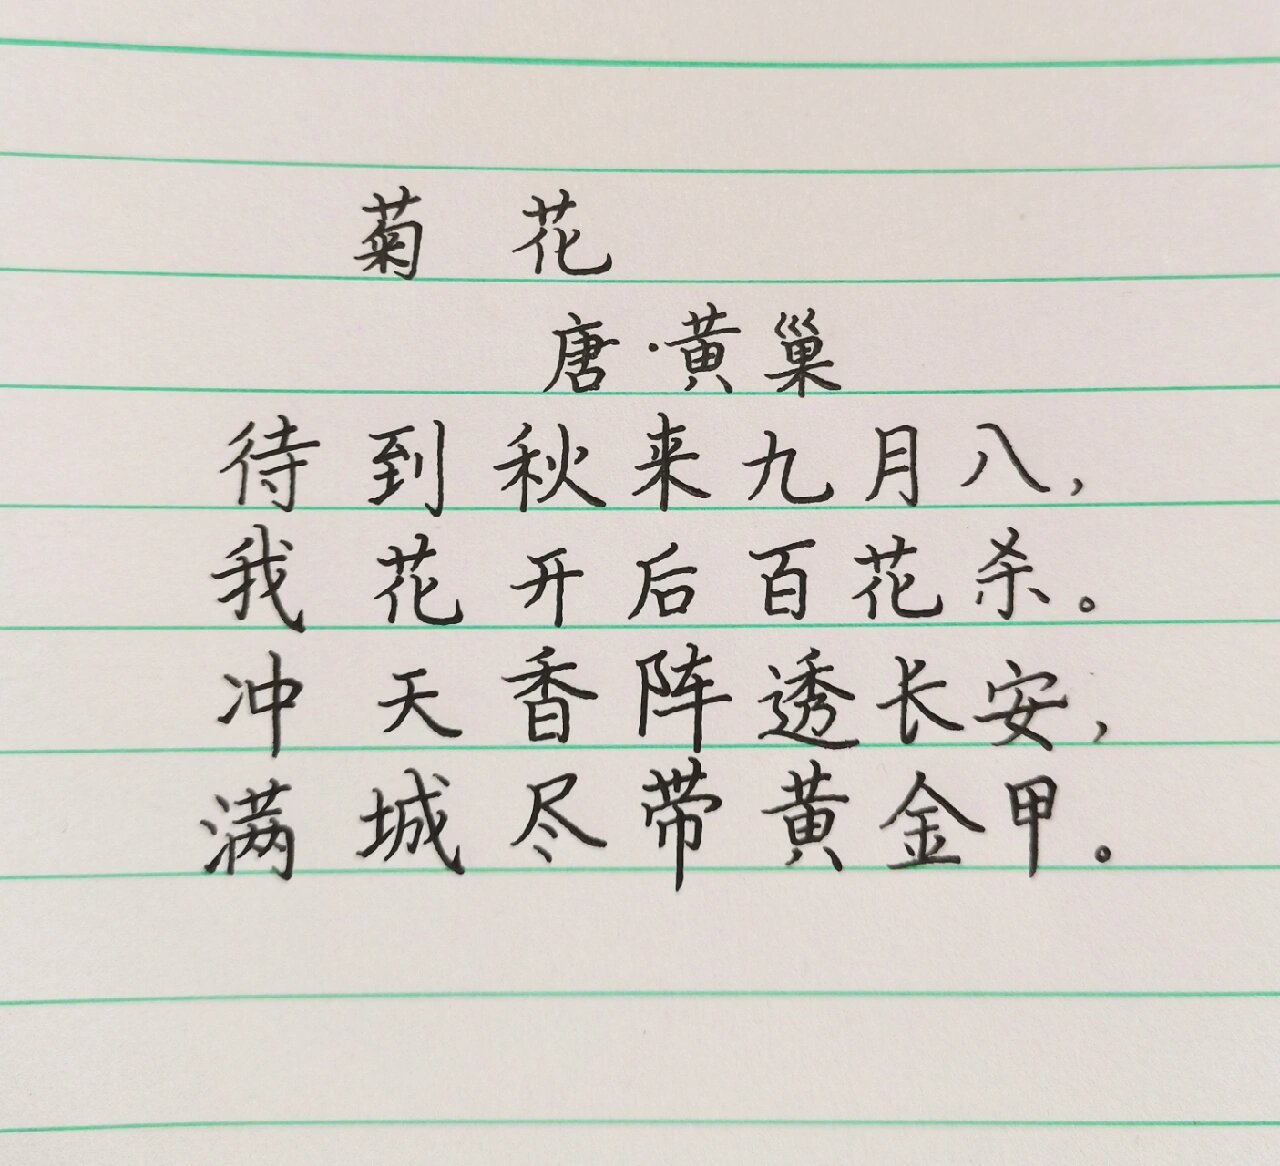 菊花
唐·黄巢
待到秋来九月八,
我花开后百花杀。
冲天香阵透长安,
满城尽带黄金甲。